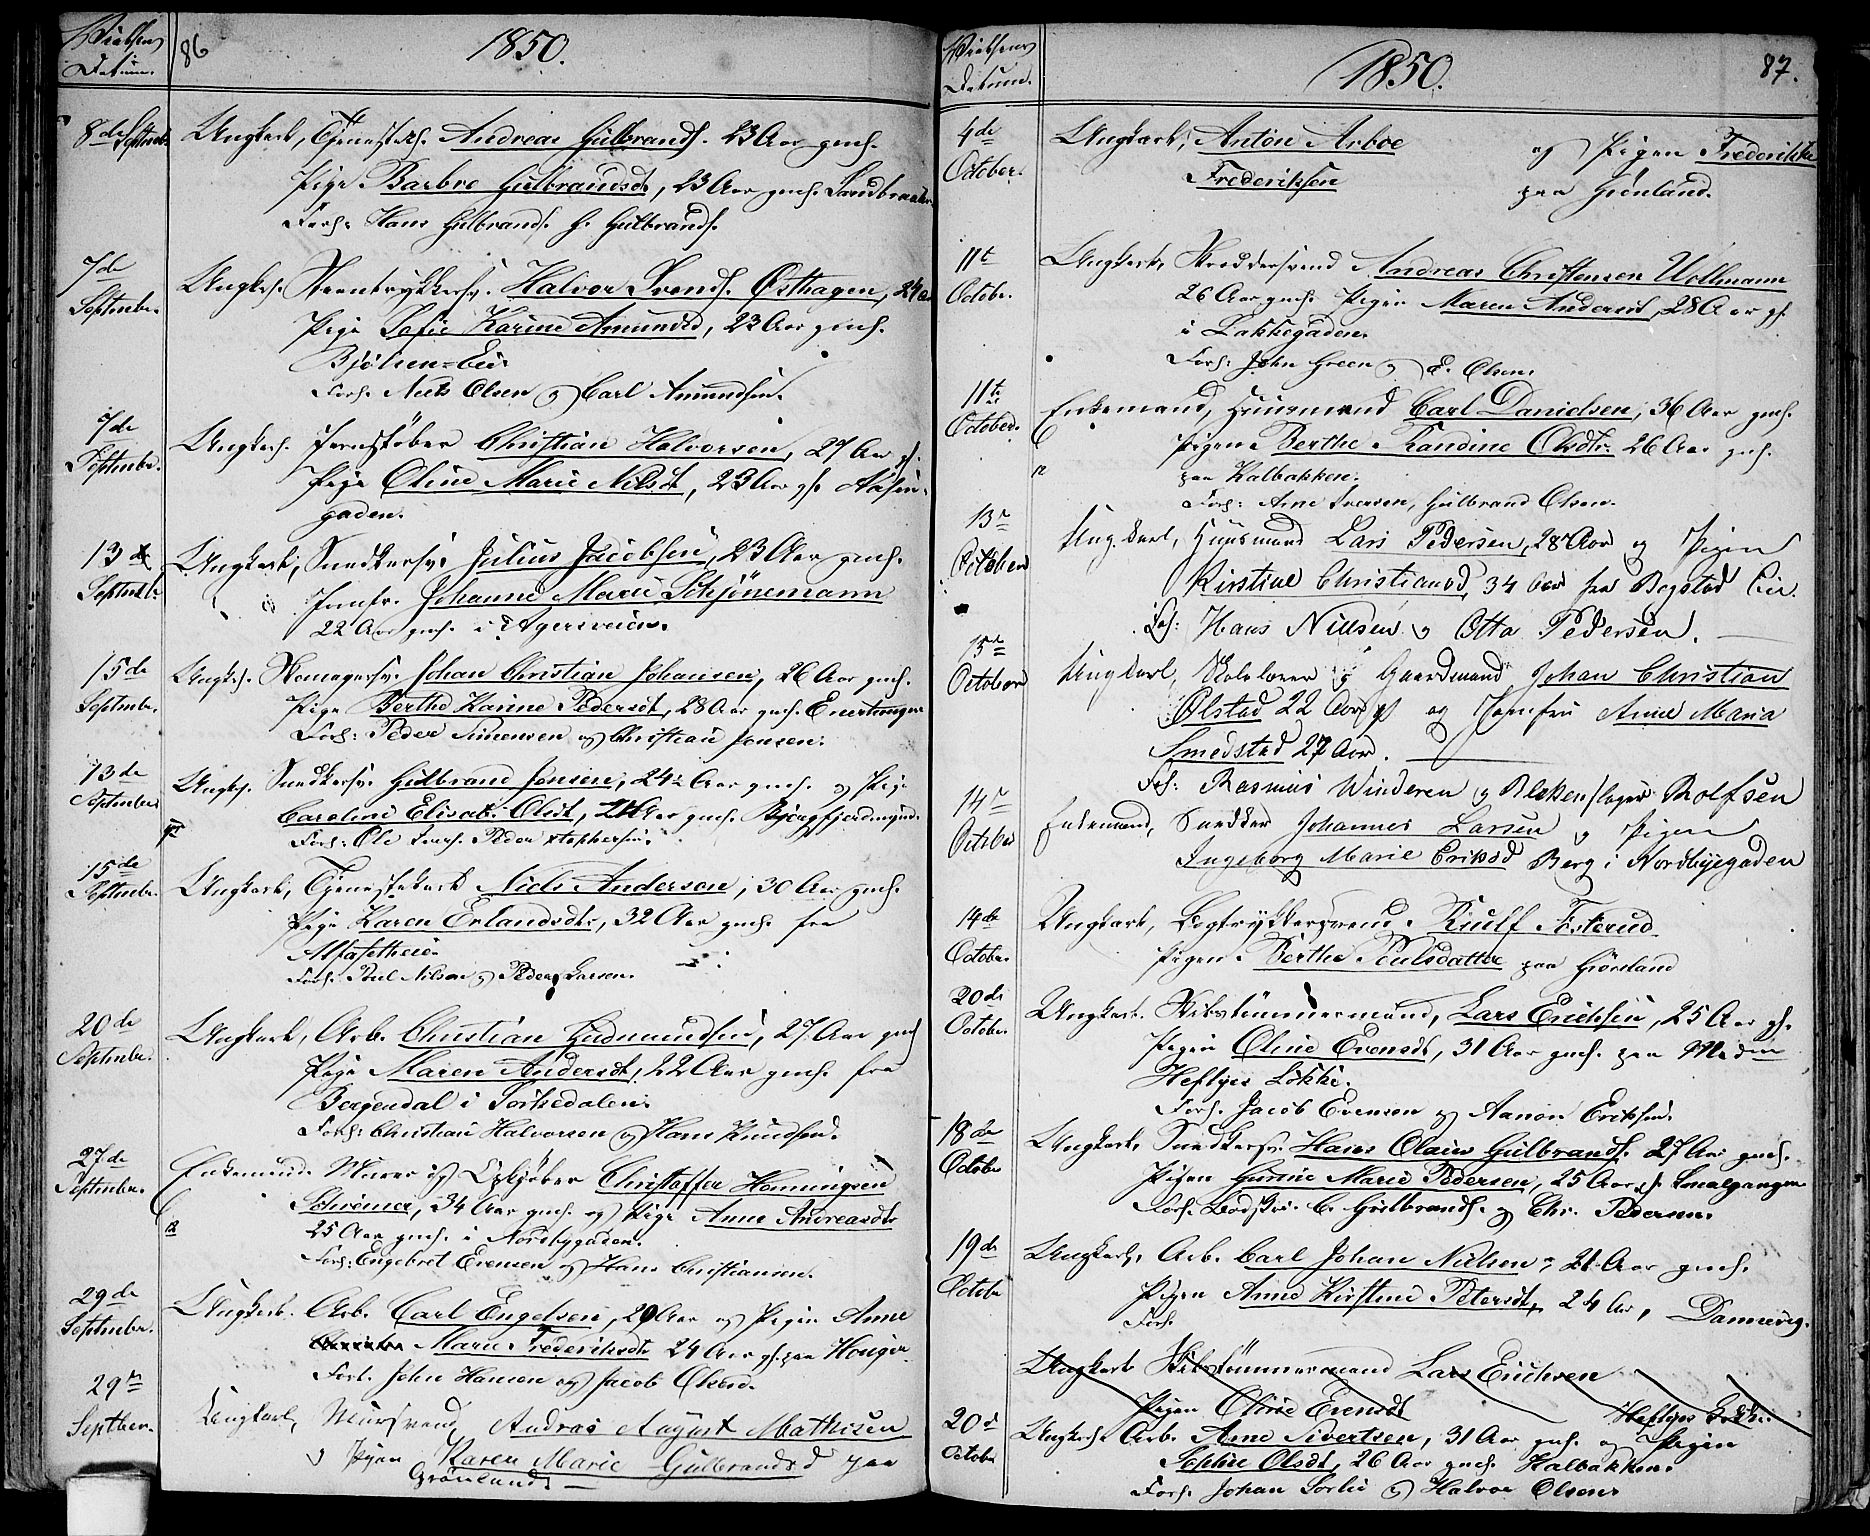 Vielsens Datum. 86 1850.
8de Septembr. Ungkarl, Tjenestek. Andreas Gulbrands. 23 Aar gmh.
Pige Barbro Gulbrandsdt, 23 Aar gmh.
Forl: Hans Gulbrands. G. Gulbrands.
7de Septembr. Ungk. Steentrykkersv. Halvor Svends. Østhagen, 24
Pige Sofie Karine Amundsd, 23 Aar gmh.
Bjølsen=Eie
Forl. Niels Olsen og Carl Amundsen.
7de Septembr. Ungk. Jernstøber Christian Halvorsen, 27 Aar gh.
Pige Oline Marie Nilsdt, 23 Aar gh.
gaden.
13de Septembr. Ungkarl, Snedkersv. Julius Jacobsen, 23 Aar gmh.
og Jomfr. Johanne Marie Schjönemann
22 Aar gmh. i Agersveien.
15de Septembr. Ungk. Johan Christian Johansen, 26 Aar gmh.
Pige Berthe Karine Pedersdt, 28 Aar gmh. Enerhaugen
Forl: Peder Simensen og Christian Jensen.
13de Septembr Ungk. Snedkersv. Gulbrand Jensen, 24 Aar gmh. og Pige
Caroline Elisab. Olsdt, 24 Aar gmh.
Forl: Ole Peder
15de Septembr. Ungkarl, Tjenestekarl Niels Andersen, 30 Aar gmh.
Pige Karen Erlandsdtr, 32 Aar gmh. fra
Forl. Poul Nilsen og Peder Larsen.
20de Septembr. Ungkarl, Arb. Christian Gudmundsen, 27 Aar gmh
Pige Maren Andersdt, 22 Aar gmh. fra
Bergendal i Sörkedalen.
Forl: Christian Halvorsen og Hans Knudsen.
27de Septembr. Enkemand. Murer og Christoffer Henningsen
Schrøuer, 34 Aar gmh. og Pige Anne Andreasdtr
25 Aar gmh. i Nordbygaden.
Forl: Engebret Evensen og Hans Christiansen.
29de Septembr. Ungkarl. Arb. Carl Engelsen, 29 Aar og Pigen Anne
Marie Frederiksdtr 24 Aar gh. paa
Forl. John Hansen og Jacob Olsen.
29de Septber. Ungkarl, Mursvend Andras August Mathisen
og Pigen Karen Marie Gulbrandsd paa
Grønland
Vielsens Datum. 1850. 87.
4de October. Ungkarl, Anton Arboe og Pigen Frederikke
Frederiksen paa Grönland.
11te Octobr. Ungkarl, Skreddersvend Andreas Christensen Wollmann
26 Aar gmh. Pigen Maren Andersdt, 28 Aar gh.
i Lakkegaden.
Forl: John Green og E. Olsen.
11te October. Enkemand, Huusmand Carl Danielsen, 36 Aar gmh.
Pigen Berthe Randine Olsdtr 26 Aar gmh.
paa Kalbakken.
Forl: Arne Iversen, Gulbrand Olsen.
13de October Ungkarl, Huusmand Lars Pedersen, 28 Aar og Pigen
Kirstine Christiansd, 34 Aar fra Bogstad Eie.
Forl: Hans Nielsen og Otto Pedersen.
15de October Ungkarl, Skolelærer og Gaardmand Johan Christian
Olstad 22 Aar gl og Jomfru Anne Maria
Smedstad 27 Aar.
Forl: Rasmus Winderen og Rolfsen
14de October Enkemand, Snedker Johannes Larsen og Pigen
Ingeborg Marie Eriksd Berg i Nordbyegaden
14de October. Ungkarl, Bogtrykkersvend Knulf Fosterud
Pigen Berthe Poulsdatter paa Grönland
20de October. Ungkarl. Skibstömmermand, Lars Erichsen, 25 Aar gh.
Pigen Oline Evensdt, 31 Aar gmh. paa
Heftyes Løkke.
Forl. Jacob Evensen og Aanon Eriksen.
18de October Ungkarl, Snedkersv. Hans Olaus Gulbrands. 27 Aar gmh.
Pigen Gurine Marie Pedersen, 25 Aar gh. Smalgangen
Forl. C. Gulbrands. og Chr. Pedersen.
19de October Ungkarl, Arb. Carl Johan Nielsen, 21 Aar gmh.
Pigen Anne Kirstine Petersdt, 24 Aar, Damvei.
Forl.
Ungkarl Skibstömmermand Lars Erichsen
Pigen Oline Evensdt Heftyes Løkke
20de October Ungkarl. Arb. Arne Sivertsen, 31 Aar gmh. og Pigen
Sophie Olsdt, 26 Aar gmh. Kalbakken.
Forl. Johan Sorlie og Halvor Olsen.